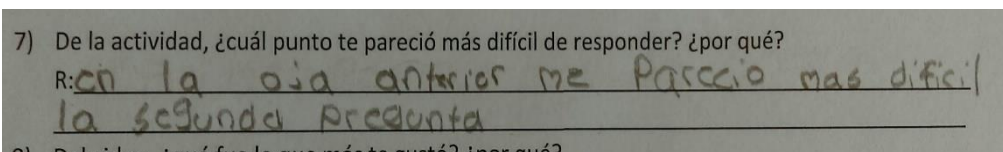 7) De la actividad, ¿cuál punto te pareció más difícil de responder? ¿por qué?
R: en la oja anterior me Parecio mas dificil
la segunda pregunta